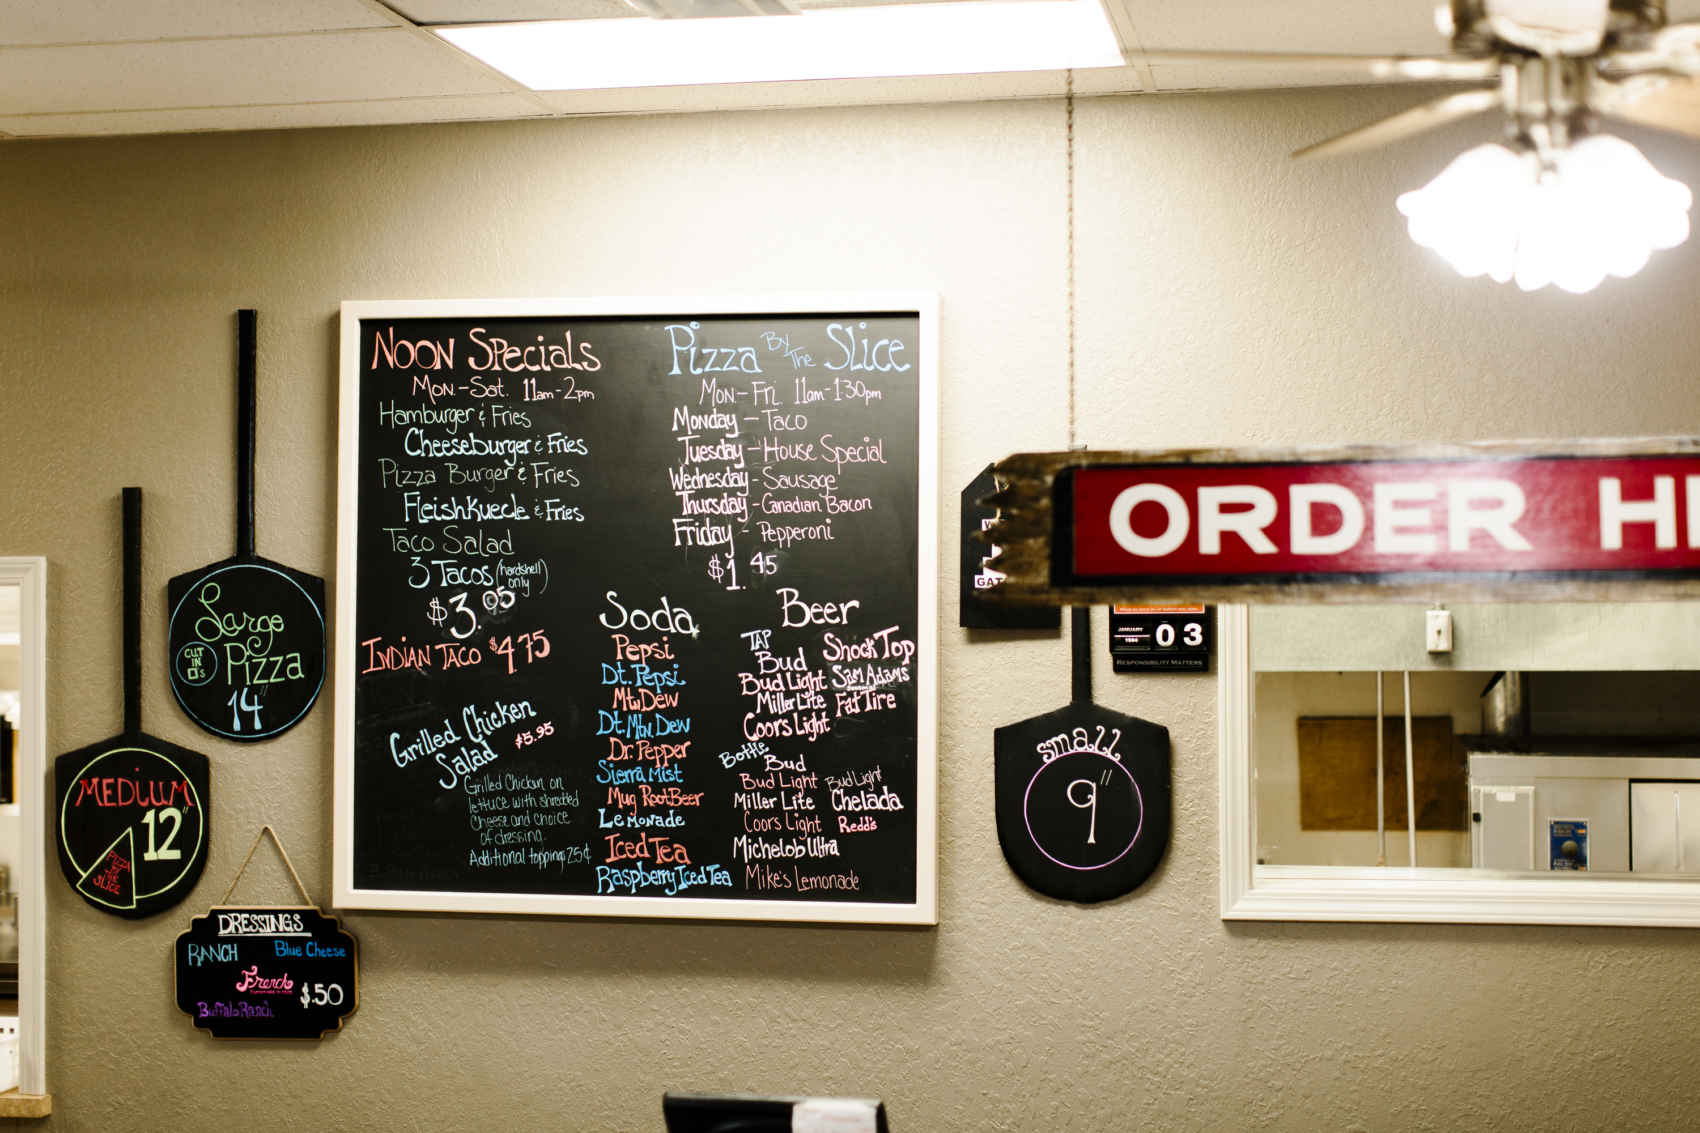 NOON SPecials
Mon.-Sat. 11am-2pm
Hamburger & Fries
CheeseBurger & Fries
Pizza Burger & Fries
FleishKuecle & Fries
Taco Salad
3 Tacos (hardshell only)
INDIAN TACO $4.75
Grilled Chicken
Salad $5.95
Grilled Chicken on
lettuce with shredded
cheese and choice
of dressing.
Additional topping 25¢
Pizza By The Slice
Mon-Fri. 11am-1:30pm
Monday - Taco
Tuesday - House Special
Wednesday - Sausage
Thursday - Canadian Bacon
Friday - Pepperoni
$1.45
Soda
Pepsi
Dt. Pepsi
Mt. Dew
Dt. Mtn. Dew
Dr. Pepper
Sierra Mist
Mug RootBeer
Lemonade
Iced Tea
Raspberry Iced Tea
Beer
TAP
Bud
Bud Light
Miller Lite
Coors Light
Shock Top
Sam Adams
Fat Tire
Bottle
Bud
Bud Light
Miller Lite
Coors Light
Michelob Ultra
Mike's Lemonade
Bud Light
Chelada
Redd's
Large
Pizza
CUT
IN
14"
MEDIUM
12"
PIZZA
BY
THE
SLICE
DRESSINGS
RANCH
Blue Cheese
French
$.50
Buffalo Ranch
small
9"
ORDER
JANUARY
03
RESPONSIBILITY MATTERS